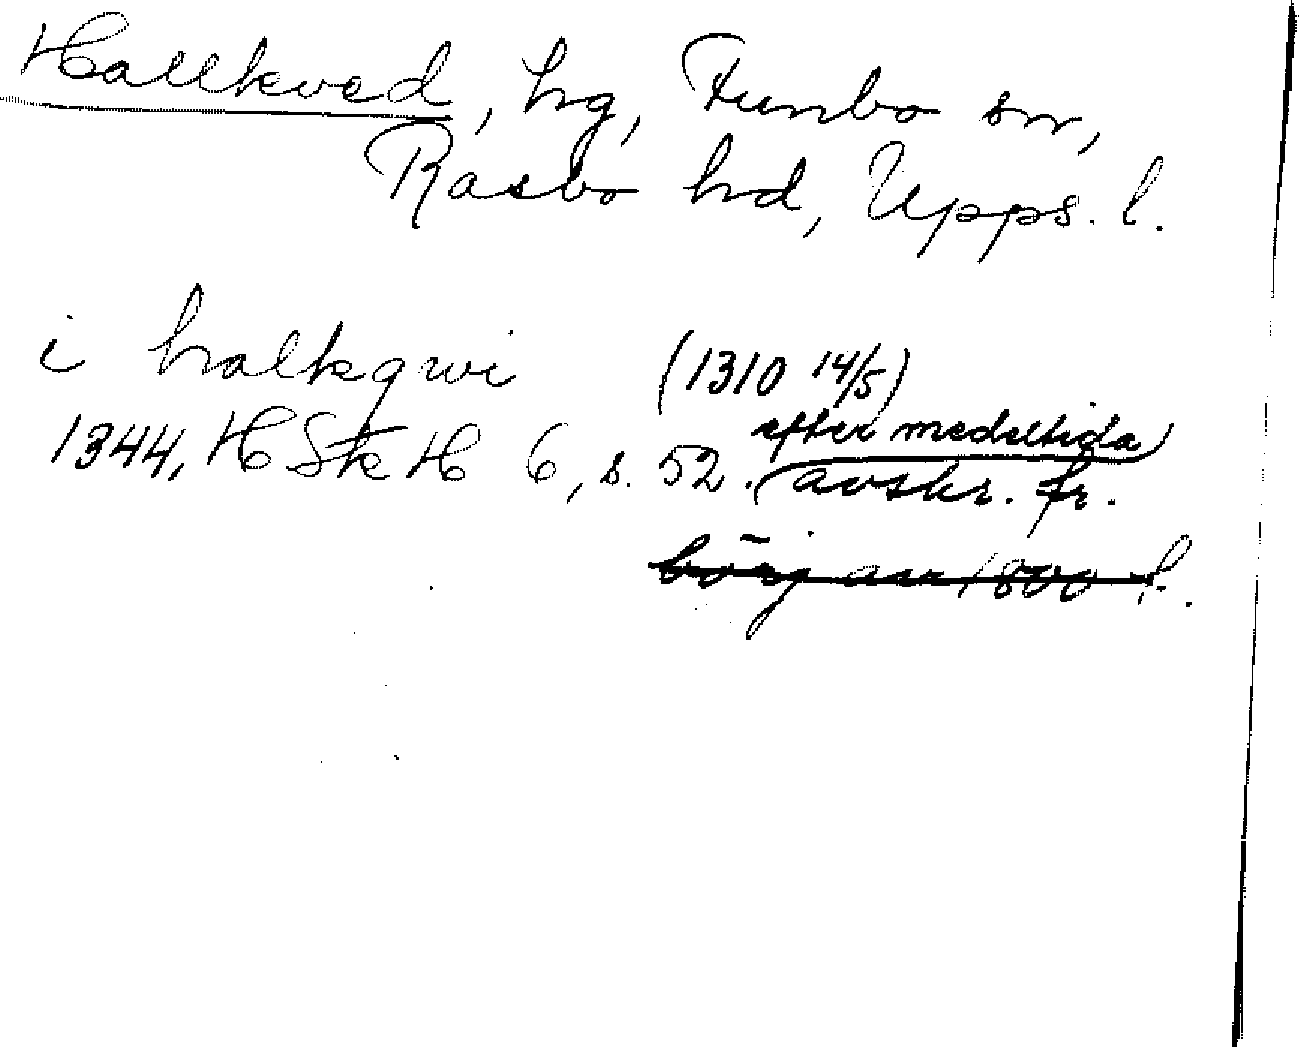 Hallkved, hg, Funbo sn,
Rasbo hd, Upps. l.
i halkqwi (1310 14/5)
efter medeltida
1344, HSkH 6, s. 52. (avskr. fr.
början 1800 t.